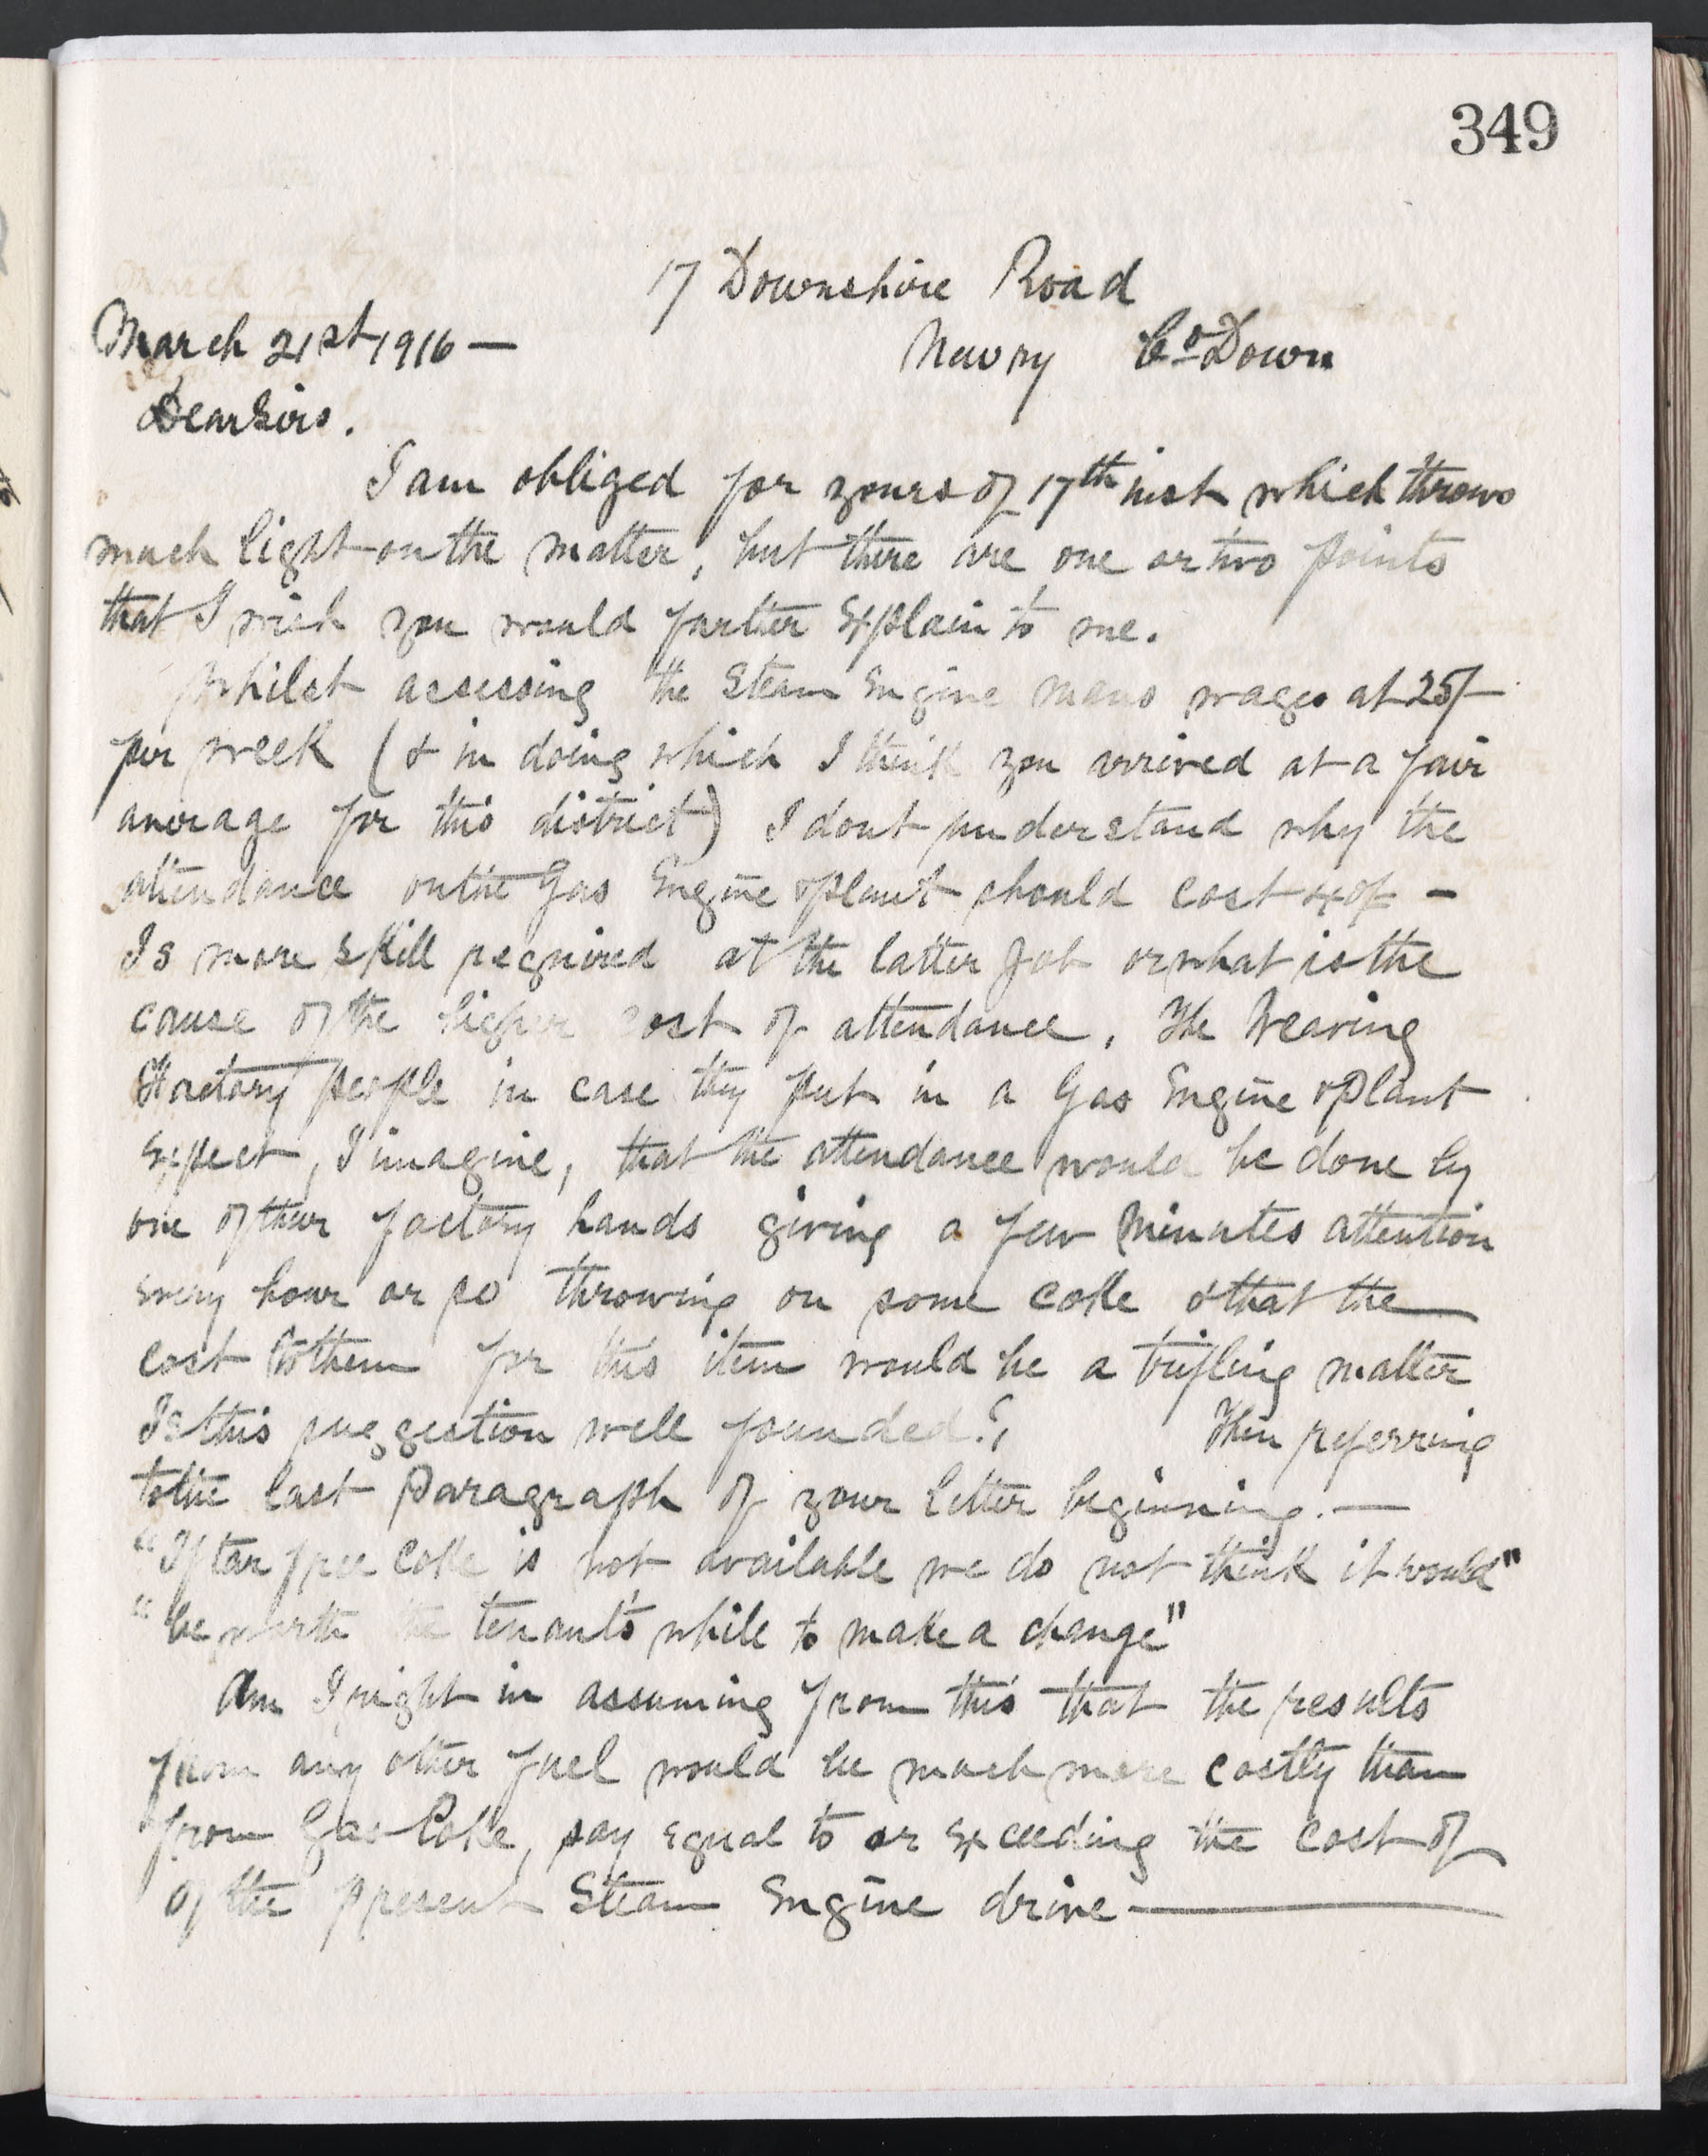 349
17 Downshire Road
March 21st 1916 — Newry Co Down
Dear Sirs.
I am obliged for yours of 17th inst which throws
much light on the matter, but there are one or two points
that I wish you would further explain to me.
Whilst assessing the Steam Engine mans wages at 25/-
per week (& in doing which I think you arrived at a fair
average for this district) I dont understand why the
attendance on the Gas Engine & Plant should cost 40/- —
Is more skill required at the latter job or what is the
cause of the higher cost of attendance. The Weaving
Factory people in case they put in a Gas Engine & Plant
expect, I imagine, that the attendance would be done by
one of their factory hands giving a few minutes attention
every hour or so throwing on some coke & that the
cost to them for this item would be a trifling matter
Is this suggestion well founded.? Then referring
to the last Paragraph of your letter beginning. —
"If tar free coke is not available we do not think it would"
"be worth the tenants while to make a change"
Am I right in assuming from this that the results
from any other fuel would be much more costly than
from Gas Coke, say equal to or exceeding the cost of
of the present Steam Engine drive —